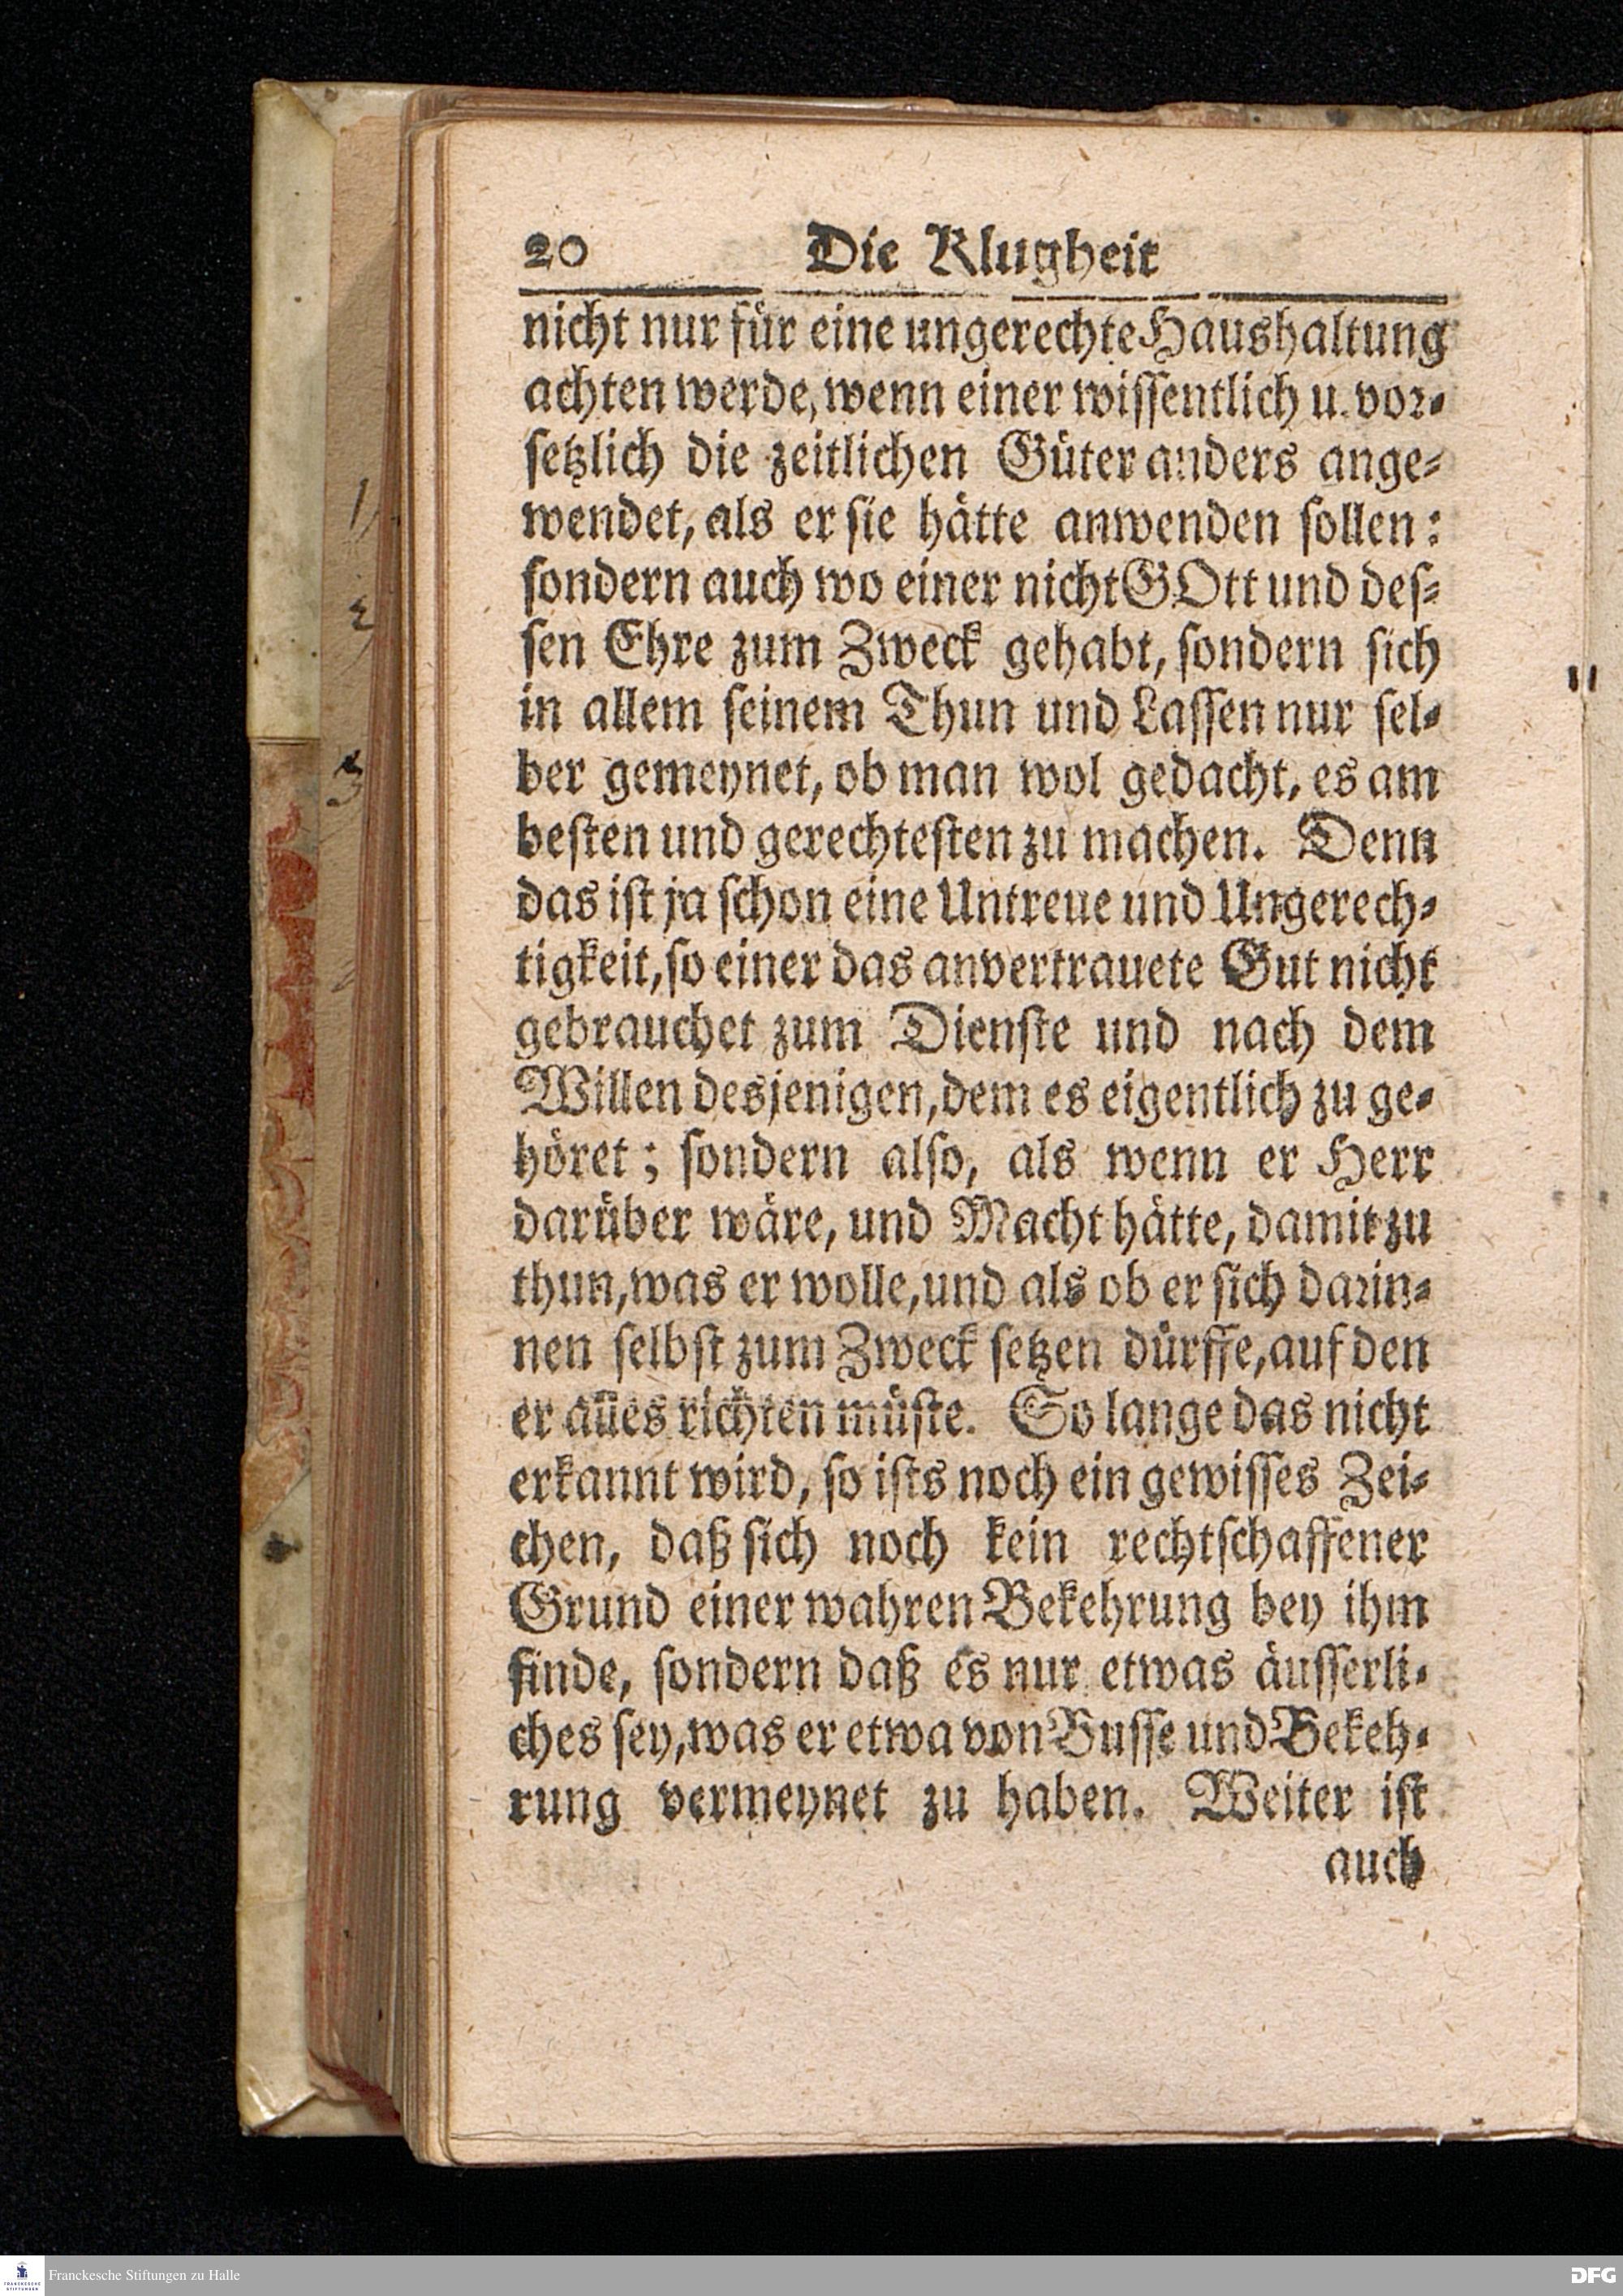 20 Die Klugheit
nicht nur für eine ungerechte Haushaltung
achten werde, wenn einer wissentlich u. vor-
setzlich die zeitlichen Güter anders ange-
wendet, als er sie hätte anwenden sollen:
sondern auch wo einer nicht GOtt und des-
sen Ehre zum Zweck gehabt, sondern sich
in allem seinem Thun und Lassen nur sel-
ber gemeynet, ob man wol gedacht, es am
besten und gerechtesten zu machen. Denn
das ist ja schon eine Untreue und Ungerech-
tigkeit, so einer das anvertrauete Gut nicht
gebrauchet zum Dienste und nach dem
Willen desjenigen, dem es eigentlich zu ge-
höret; sondern also, als wenn er Herr
darüber wäre, und Macht hätte, damit zu
thun, was er wolle, und als ob er sich darin-
nen selbst zum Zweck setzen dürffe, auf den
er alles richten müste. So lange das nicht
erkannt wird, so ists noch ein gewisses Zei-
chen, daß sich noch kein rechtschaffener
Grund einer wahren Bekehrung bey ihm
finde, sondern daß es nur etwas äusserli-
ches sey, was er etwa von Busse und Bekeh-
rung vermeynet zu haben. Weiter ist
auch
Franckesche Stiftungen zu Halle
DFG